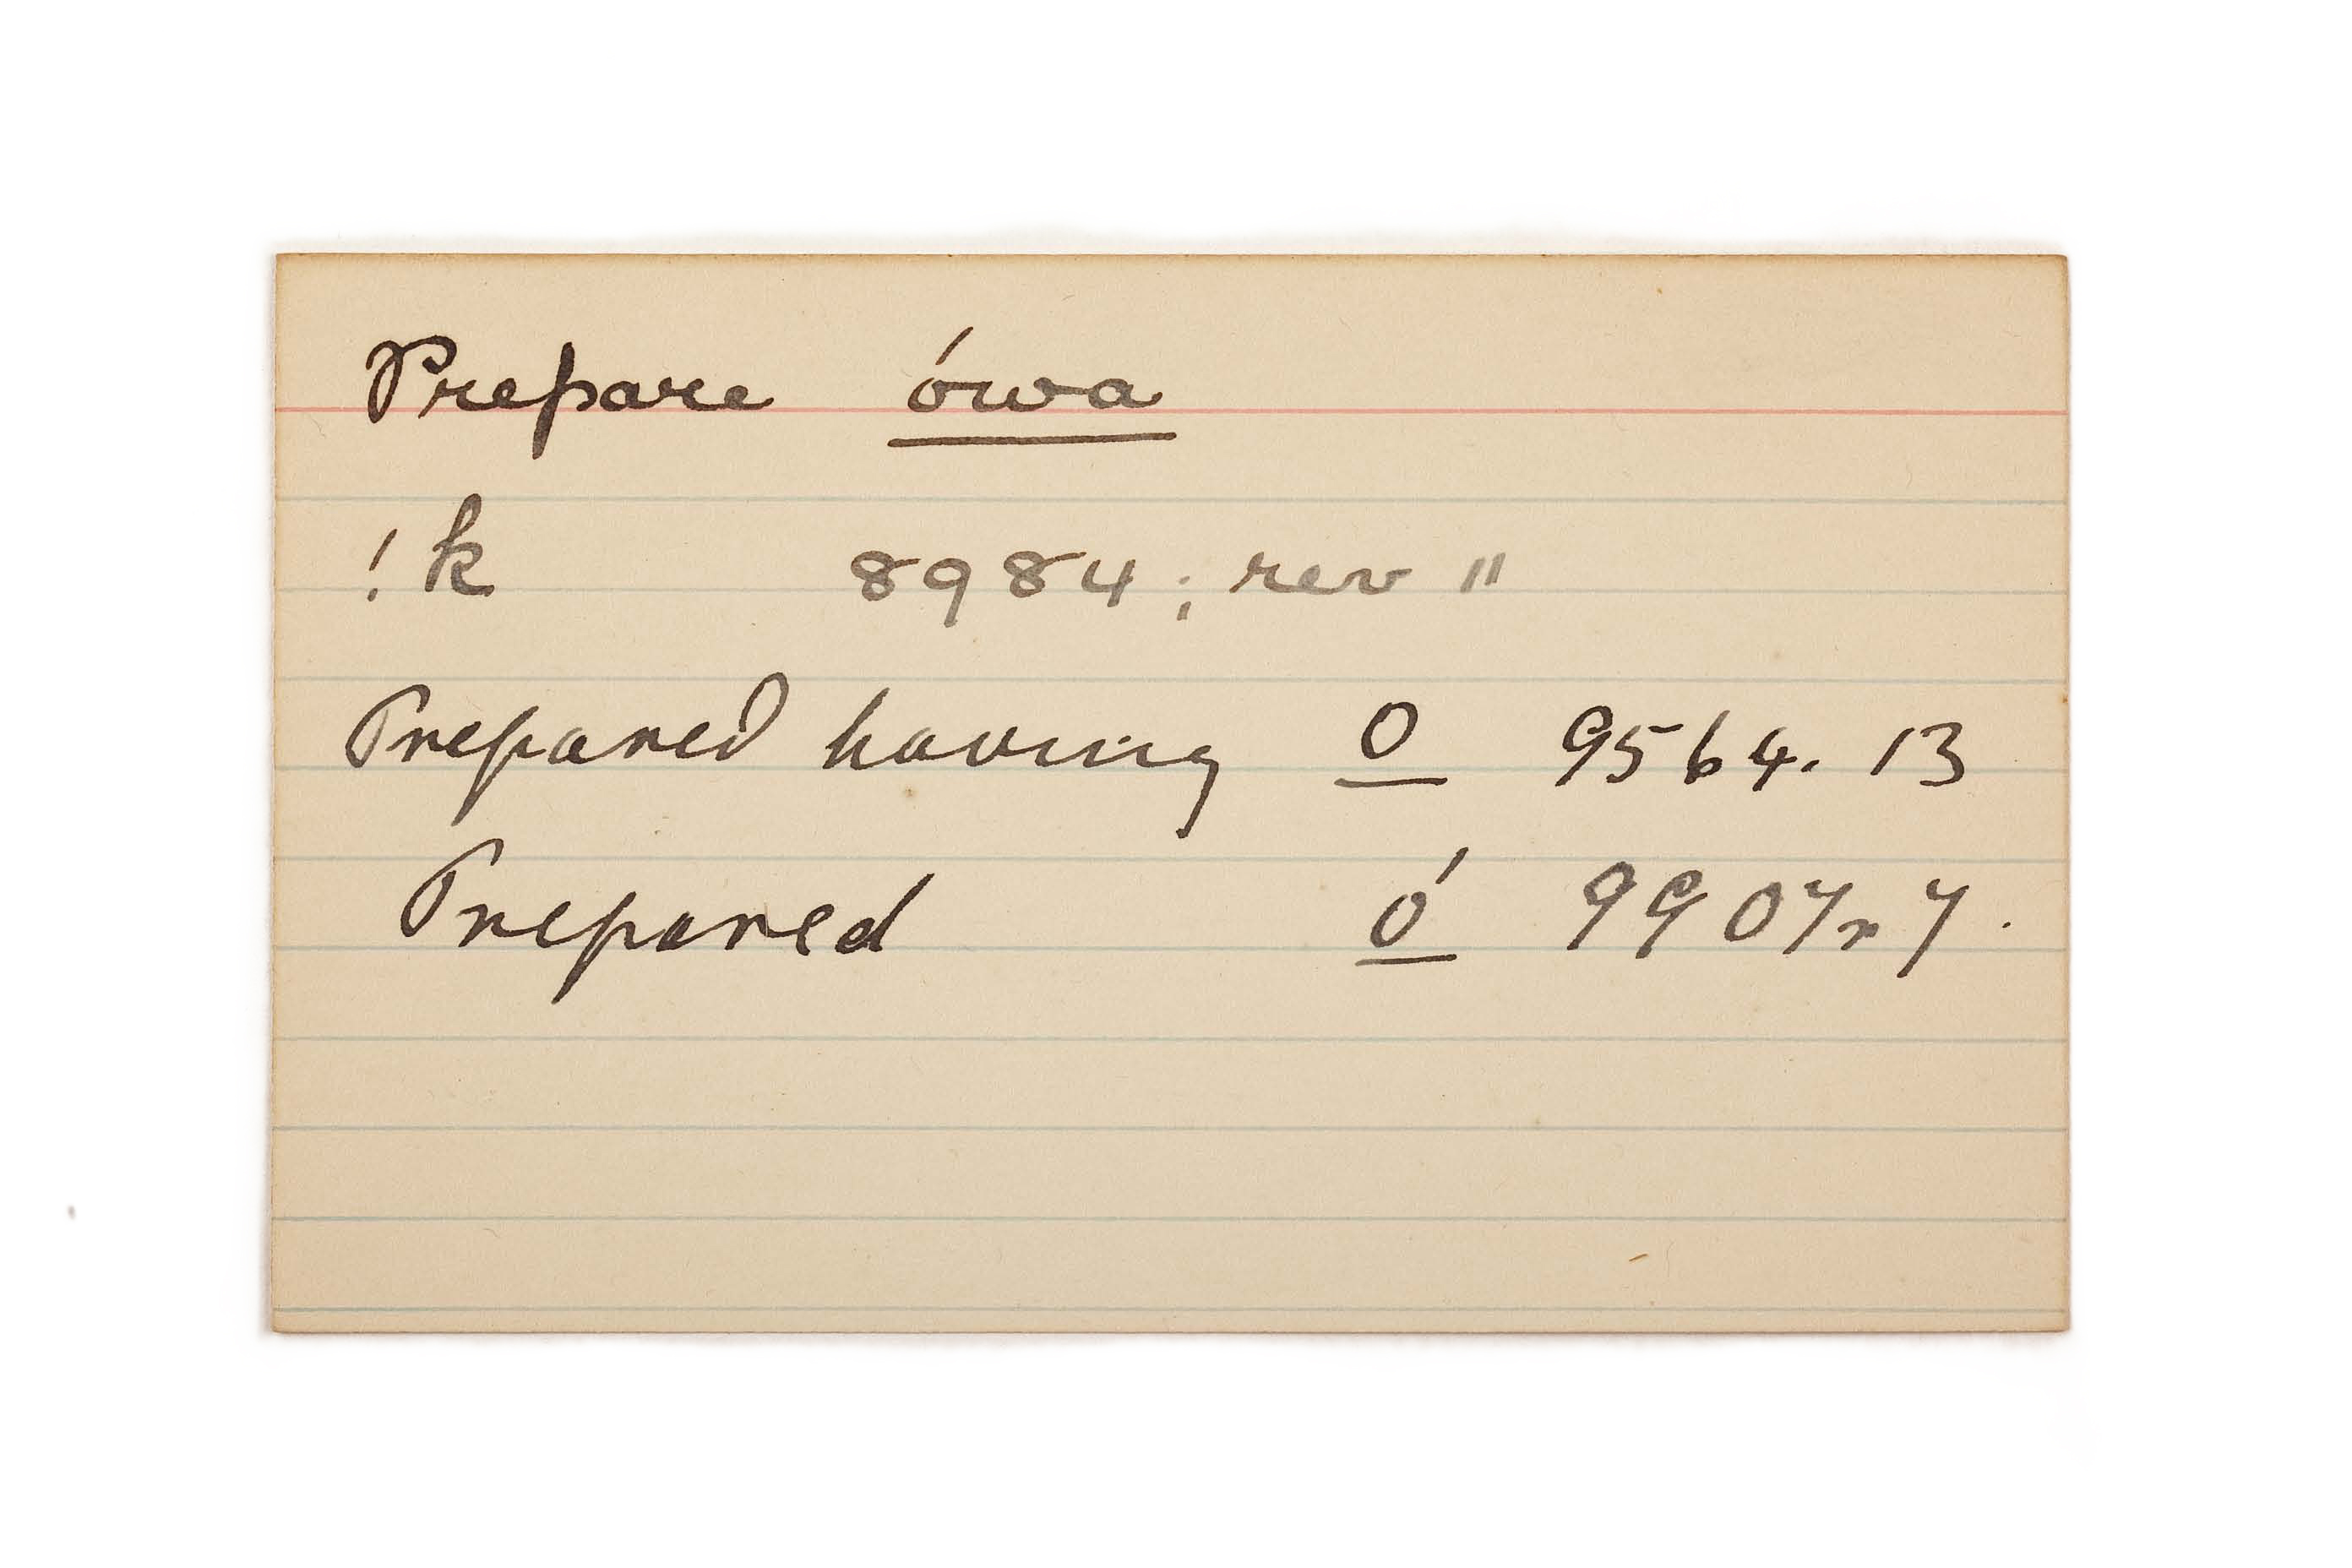 Prepare ówa
!k 8984; rev "
Prepared having o 9564. 13
Prepared ó 9907r 7.